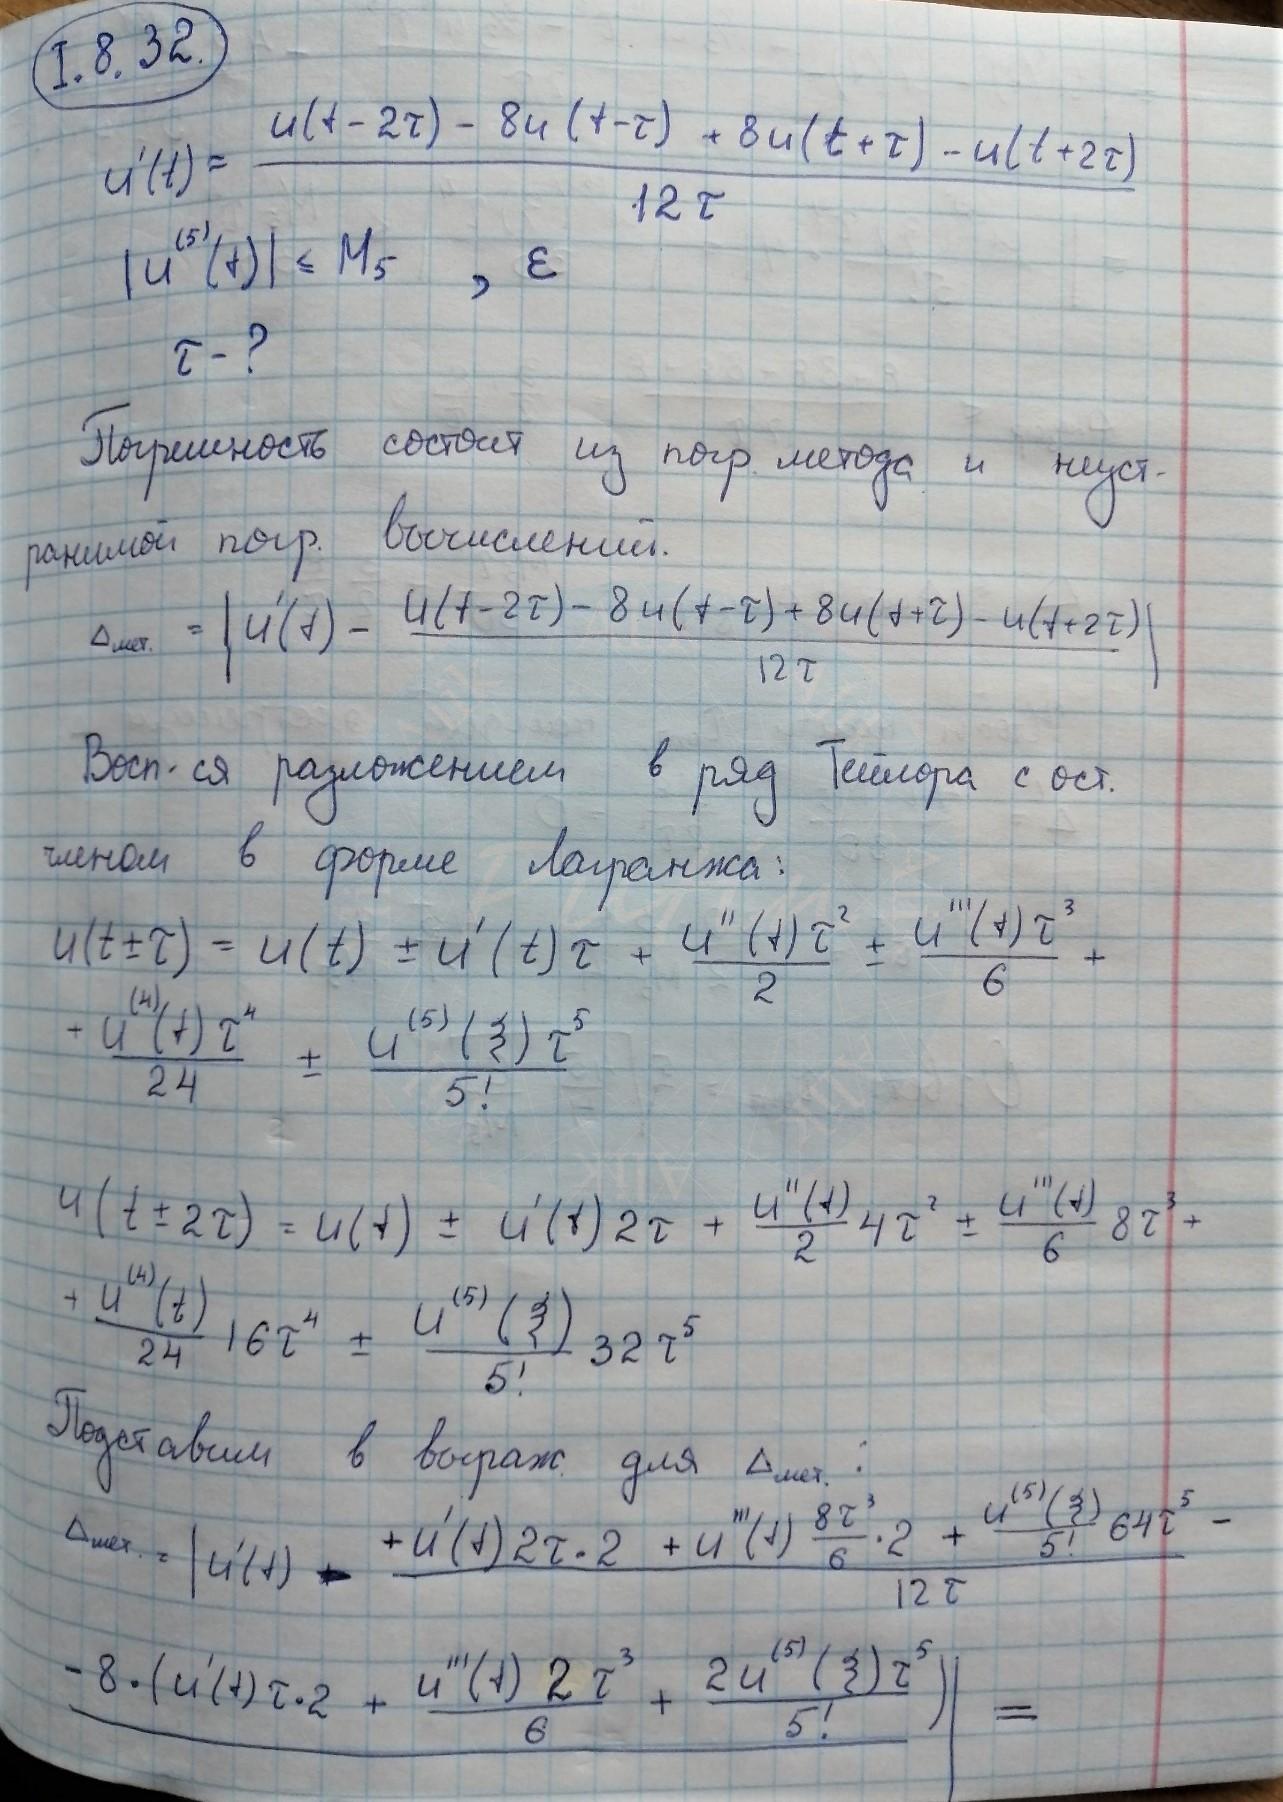 I.8.32.
u'(t) = (u(t-2τ) - 8u(t-τ) + 8u(t+τ) - u(t+2τ)) / 12τ
|u⁽⁵⁾(t)| ≤ M₅ , ε
τ - ?
Погрешность состоит из погр. метода и неуст-
ранимой погр. вычислений.
Δмет. = |u'(t) - (u(t-2τ) - 8u(t-τ) + 8u(t+τ) - u(t+2τ)) / 12τ|
Восп-ся разложением в ряд Тейлора с ост.
членом в форме Лагранжа:
u(t±τ) = u(t) ± u'(t)τ + u''(t)τ²/2 ± u'''(t)τ³/6 +
+ u⁽⁴⁾(t)τ⁴/24 ± u⁽⁵⁾(ξ)τ⁵/5!
u(t±2τ) = u(t) ± u'(t)2τ + u''(t)/2 4τ² ± u'''(t)/6 8τ³ +
+ u⁽⁴⁾(t)/24 16τ⁴ ± u⁽⁵⁾(ξ)/5! 32τ⁵
Подставим в выраж. для Δмет.:
Δмет. = |u'(t) + (+u'(t)2τ·2 + u'''(t) 8τ³/6 ·2 + u⁽⁵⁾(ξ)/5! 64τ⁵ - / 12τ
-8·(u'(t)τ·2 + u'''(t)2τ³/6 + 2u⁽⁵⁾(ξ)τ⁵/5!)| =